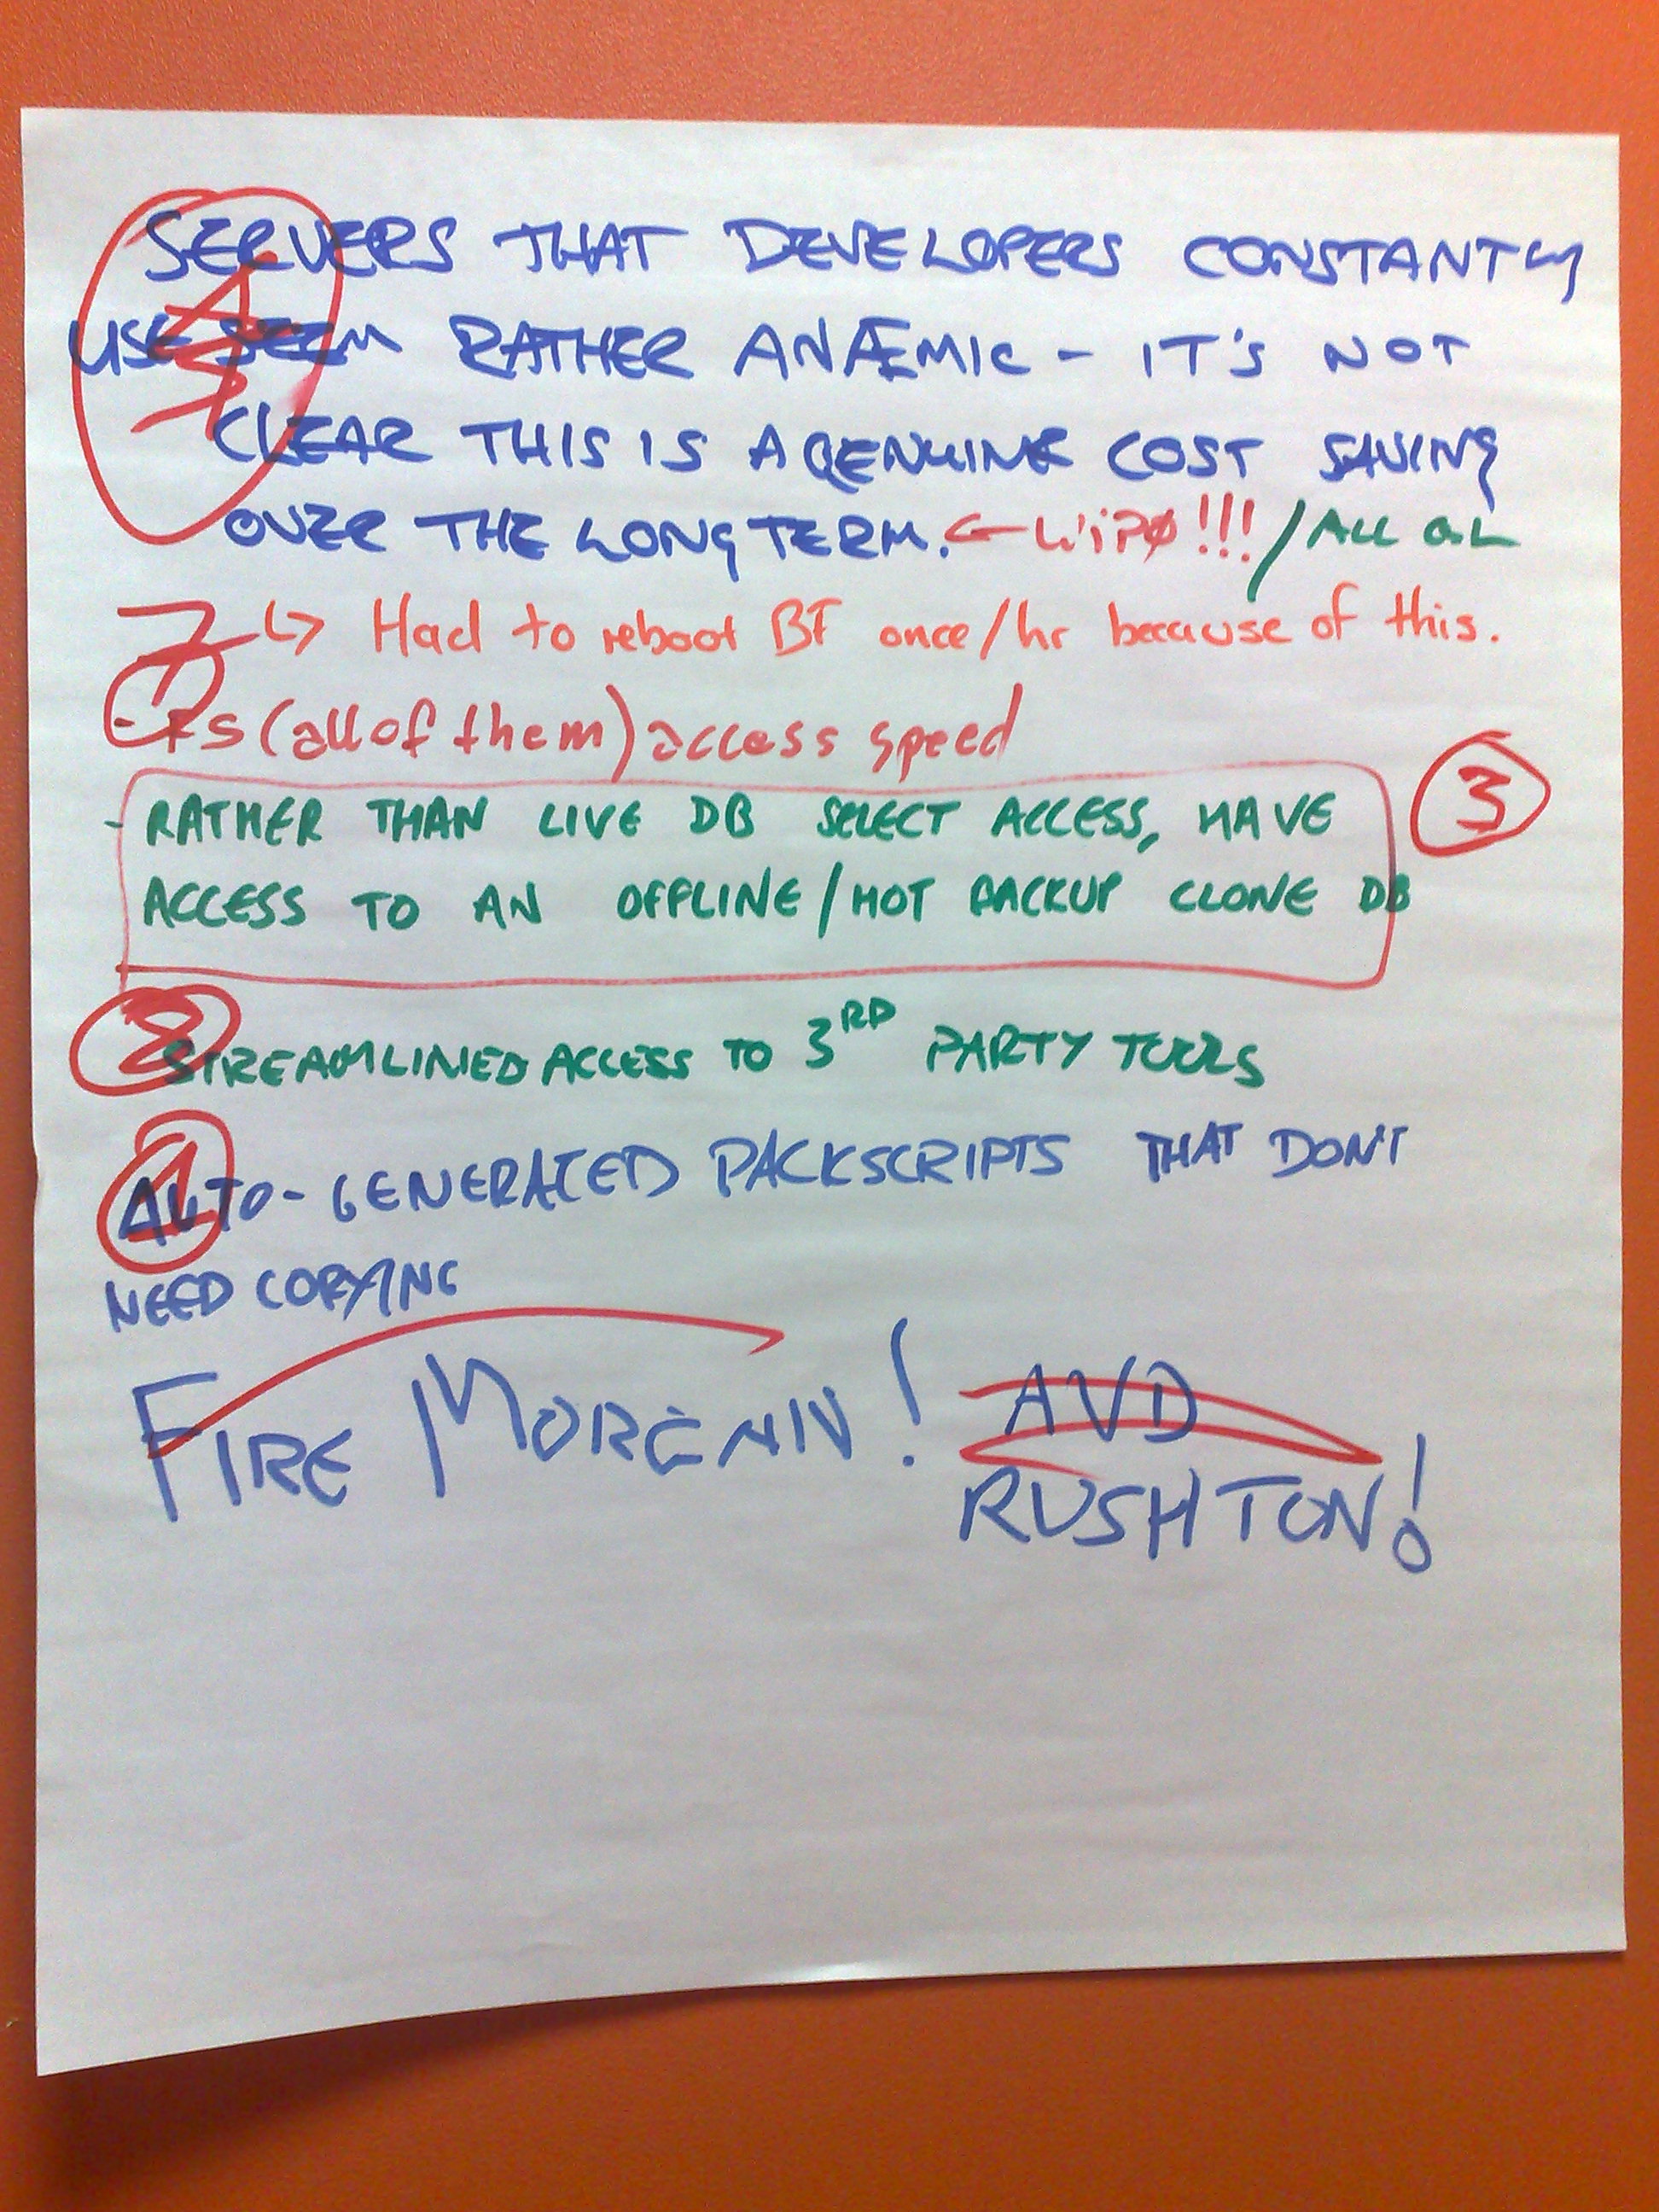 SERVERS THAT DEVELOPERS CONSTANTLY
USE SEEM RATHER ANÆMIC - IT'S NOT
CLEAR THIS IS A GENUINE COST SAVING
OVER THE LONG TERM. ← WiPØ!!! / ALL
↳ Had to reboot BF once/hr because of this.
- FS (all of them) access speed
- RATHER THAN LIVE DB SELECT ACCESS, HAVE
3
ACCESS TO AN OFFLINE/HOT BACKUP CLONE DB
2
STREAMLINED ACCESS TO 3RD PARTY TOOLS
1
AUTO-GENERATED PACKSCRIPTS THAT DON'T
NEED COPYING
FIRE MORGAN! AND
RUSHTON!